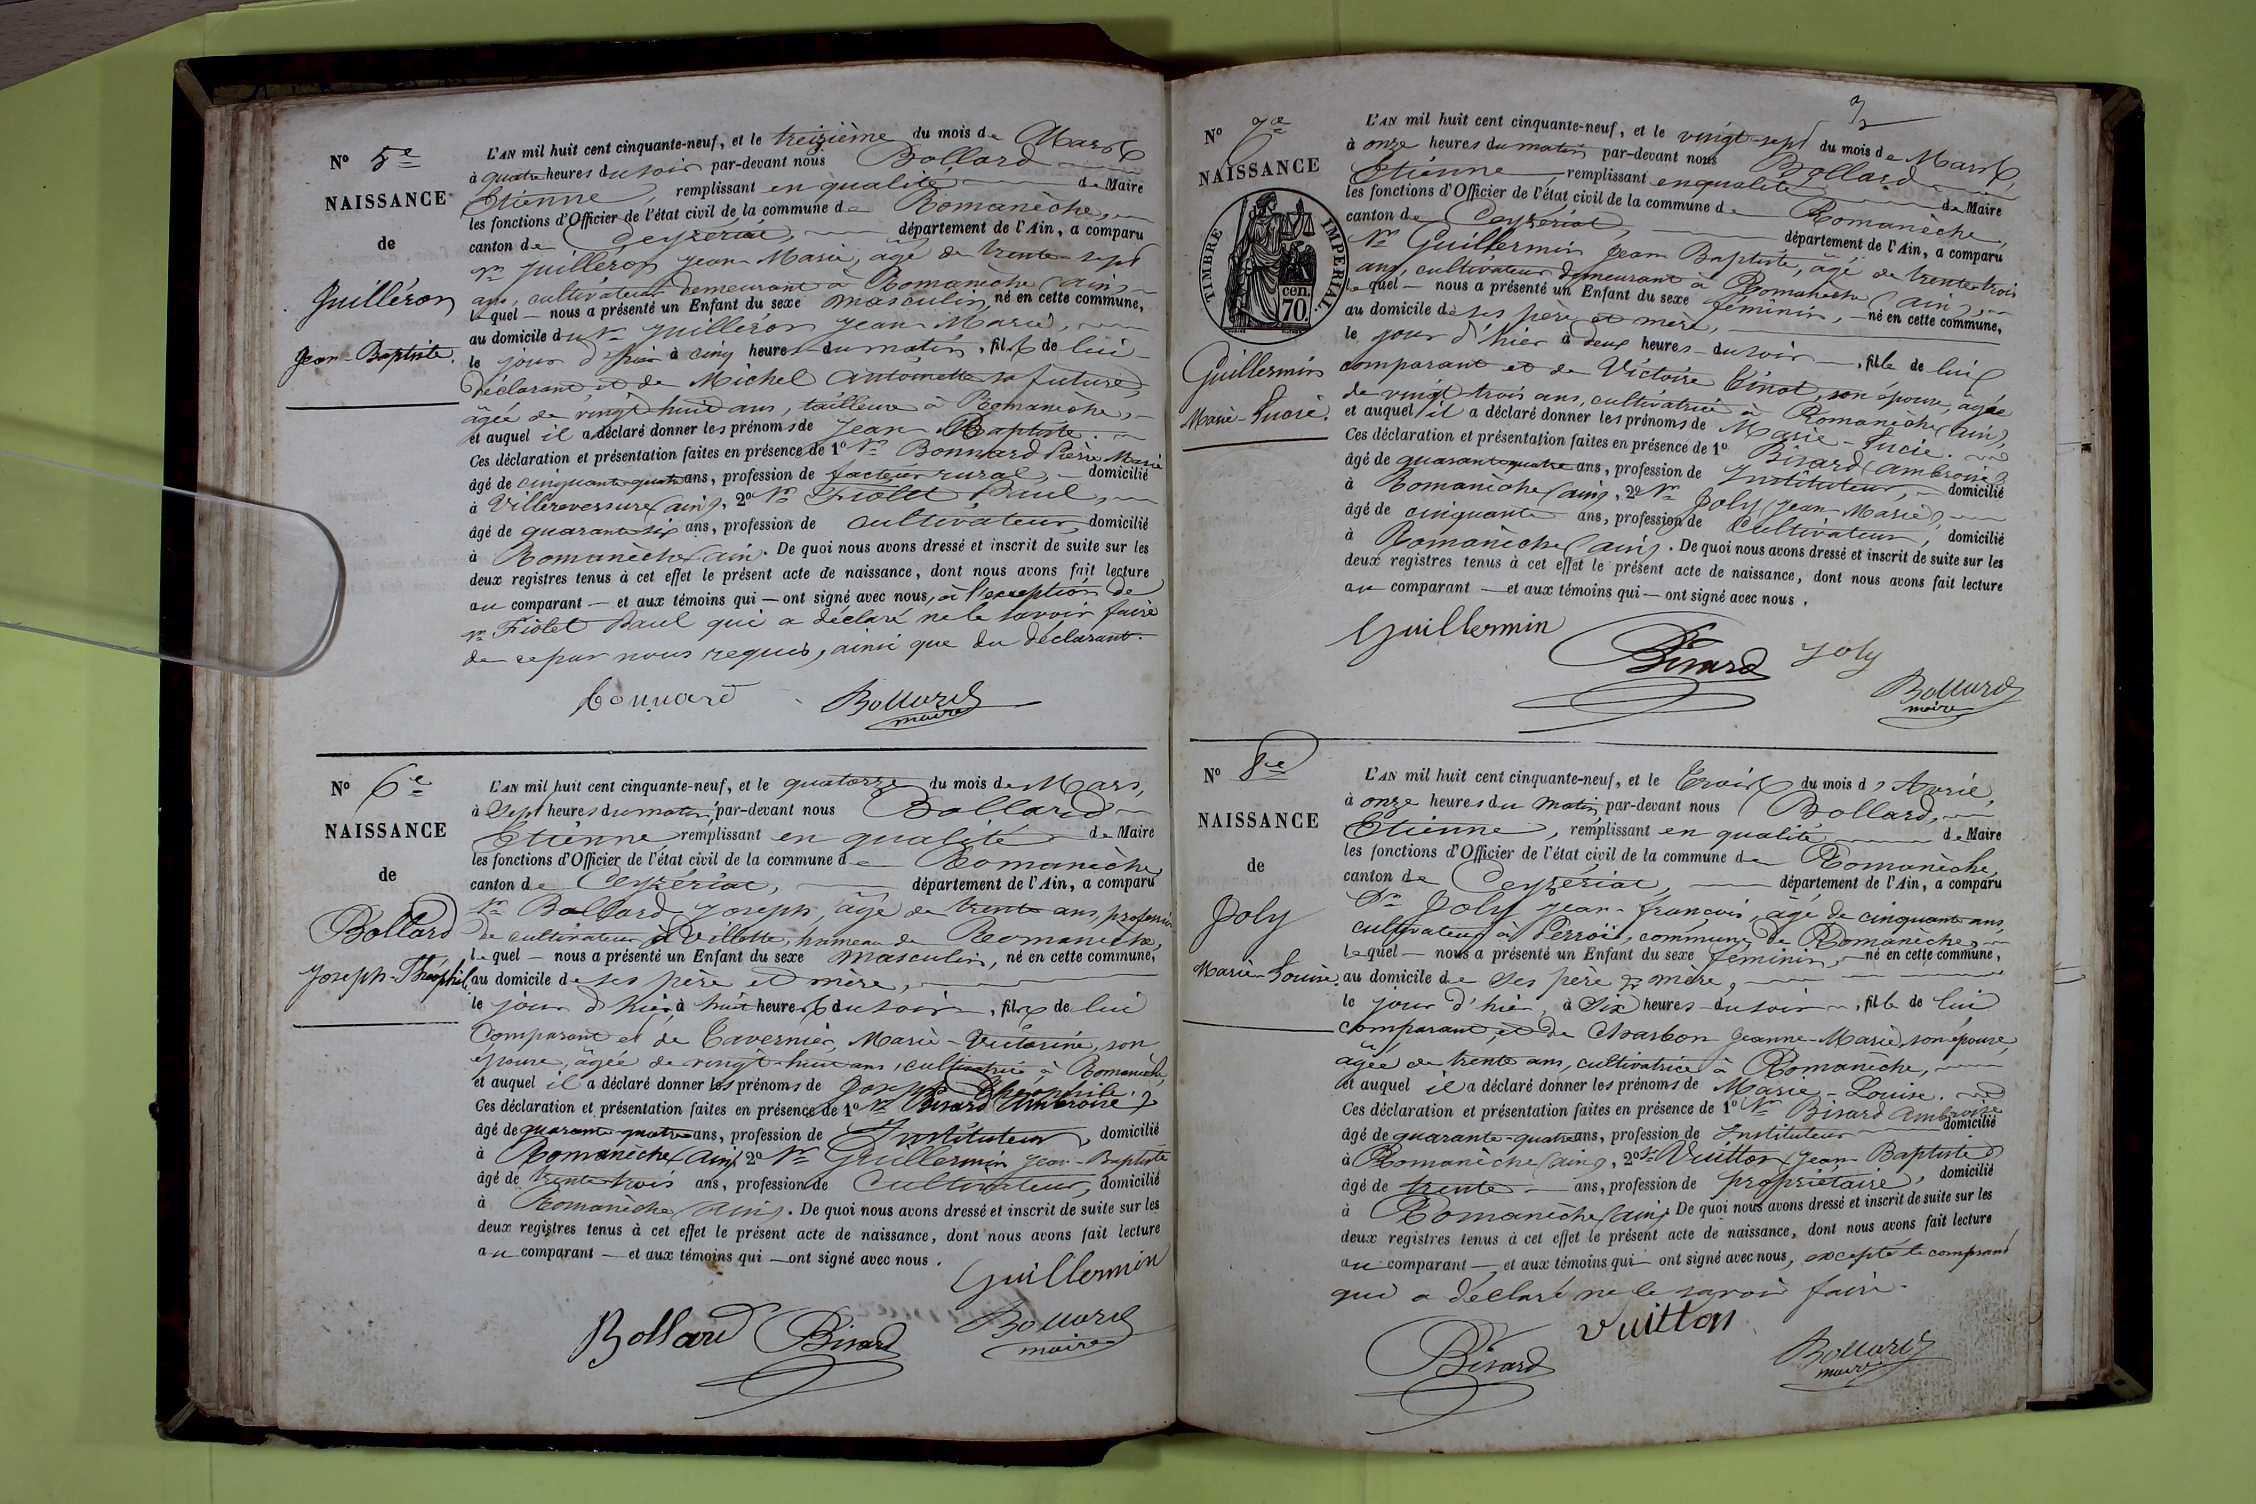 N° 5e
NAISSANCE
de
Guilléron
Jean-Baptiste.
L'AN mil huit cent cinquante-neuf, et le treizième du mois de Mars
à quatre heures du soir par-devant nous Bollard
Etienne, remplissant en qualité de Maire
les fonctions d'Officier de l'état civil de la commune de Romanèche,
canton de Ceyzériat, département de l'Ain, a comparu
Sr Guilleron Jean-Marie, âgé de trente-sept
ans, cultivateur demeurant à Romanèche (ain)
lequel nous a présenté un Enfant du sexe masculin, né en cette commune,
au domicile du Sr Guilléron Jean-Marie,
le jour d'hier à cinq heures du matin, fils de lui
déclarant, et de Michel Antoinette sa future,
âgée de vingt-huit ans, tailleuse à Romanèche,
et auquel il a déclaré donner les prénoms de Jean-Baptiste.
Ces déclaration et présentation faites en présence de 1° Sr Bonnard Pierre Marie
âgé de cinquante-quatre ans, profession de facteur rural, domicilié
à Villereversure (ain), 2° Sr Fiolet Paul,
âgé de quarante-six ans, profession de cultivateur, domicilié
à Romanèche (ain). De quoi nous avons dressé et inscrit de suite sur les
deux registres tenus à cet effet le présent acte de naissance, dont nous avons fait lecture
au comparant et aux témoins qui ont signé avec nous, à l'exception de
Sr Fiolet Paul qui a déclaré ne le savoir faire
de ce par nous requis, ainsi que du déclarant.
bonnard Bollard
maire
N° 6e
NAISSANCE
de
Bollard
Joseph-Théophile
L'AN mil huit cent cinquante-neuf, et le quatorze du mois de Mars,
à Sept heures du matin, par-devant nous Bollard
Etienne remplissant en qualité de Maire
les fonctions d'Officier de l'état civil de la commune de Romanèche
canton de Ceyzériat, département de l'Ain, a comparu
Sr Bollard Joseph, âgé de trente ans, profession
de cultivateur à Villette, hameau de Romanèche,
lequel nous a présenté un Enfant du sexe masculin, né en cette commune,
au domicile de ses père et mère,
le jour d'hier à huit heures du soir, fils de lui
Comparant et de Tavernier, Marie-Victorine, son
épouse, âgée de vingt-huit ans, cultivatrice à Romanèche,
et auquel il a déclaré donner les prénoms de Joseph Théophile.
Ces déclaration et présentation faites en présence de 1° Sr Birard Ambroise
âgé de quarante-quatre ans, profession de Instituteur, domicilié
à Romanèche (ain), 2° Sr Guillermin Jean-Baptiste
âgé de trente-trois ans, profession de Cultivateur, domicilié
à Romanèche (ain). De quoi nous avons dressé et inscrit de suite sur les
deux registres tenus à cet effet le présent acte de naissance, dont nous avons fait lecture
au comparant et aux témoins qui ont signé avec nous.
Guillermin
Bollard Birard Bollard
maire
3
N° 7e
NAISSANCE
TIMBRE IMPERIAL.
cen.
70.
Guillermin
Marie-Lucie.
L'AN mil huit cent cinquante-neuf, et le vingt-sept du mois de Mars,
à onze heures du matin par-devant nous Bollard
Etienne, remplissant en qualité de Maire
les fonctions d'Officier de l'état civil de la commune de Romanèche,
canton de Ceyzériat, département de l'Ain, a comparu
Sr Guillermin Jean Baptiste, âgé de trente-trois
ans, cultivateur demeurant à Romanèche (ain),
lequel nous a présenté un Enfant du sexe féminin, né en cette commune,
au domicile de ses père et mère,
le jour d'hier à deux heures du soir, fille de lui
comparant et de Victoire Tinot, son épouse, âgée
de vingt trois ans, cultivatrice à Romanèche (ain),
et auquel il a déclaré donner les prénoms de Marie-Lucie.
Ces déclaration et présentation faites en présence de 1° Birard (ambroise)
âgé de quarante quatre ans, profession de Instituteur, domicilié
à Romanèche (ain), 2° Sr Joly (Jean-Marie),
âgé de cinquante ans, profession de Cultivateur, domicilié
à Romanèche (ain). De quoi nous avons dressé et inscrit de suite sur les
deux registres tenus à cet effet le présent acte de naissance, dont nous avons fait lecture
au comparant et aux témoins qui ont signé avec nous.
Guillermin Birard Joly
Bollard
maire
N° 8e
NAISSANCE
de
Joly
Marie-Louise.
L'AN mil huit cent cinquante-neuf, et le Trois du mois d'Avril,
à onze heures du matin, par-devant nous Bollard,
Etienne, remplissant en qualité de Maire
les fonctions d'Officier de l'état civil de la commune de Romanèche,
canton de Ceyzériat, département de l'Ain, a comparu
Sr Joly Jean-françois, âgé de cinquante ans,
cultivateur à Perroi, commune de Romanèche,
lequel nous a présenté un Enfant du sexe féminin, né en cette commune,
au domicile de ses père & mère,
le jour d'hier, à Six heures du soir, fille de lui
comparant, et de Charbon Jeanne-Marie, son épouse,
âgée de trente ans, cultivatrice à Romanèche,
et auquel il a déclaré donner les prénoms de Marie-Louise.
Ces déclaration et présentation faites en présence de 1° Sr Birard Ambroise
âgé de quarante-quatre ans, profession de Instituteur domicilié
à Romanèche (ain), 2° Sr Vuitton (Jean Baptiste)
âgé de trente ans, profession de propriétaire, domicilié
à Romanèche (ain). De quoi nous avons dressé et inscrit de suite sur les
deux registres tenus à cet effet le présent acte de naissance, dont nous avons fait lecture
au comparant, et aux témoins qui ont signé avec nous, excepté le comparant
qui a déclaré ne le savoir faire.
Birard Vuitton Bollard
maire